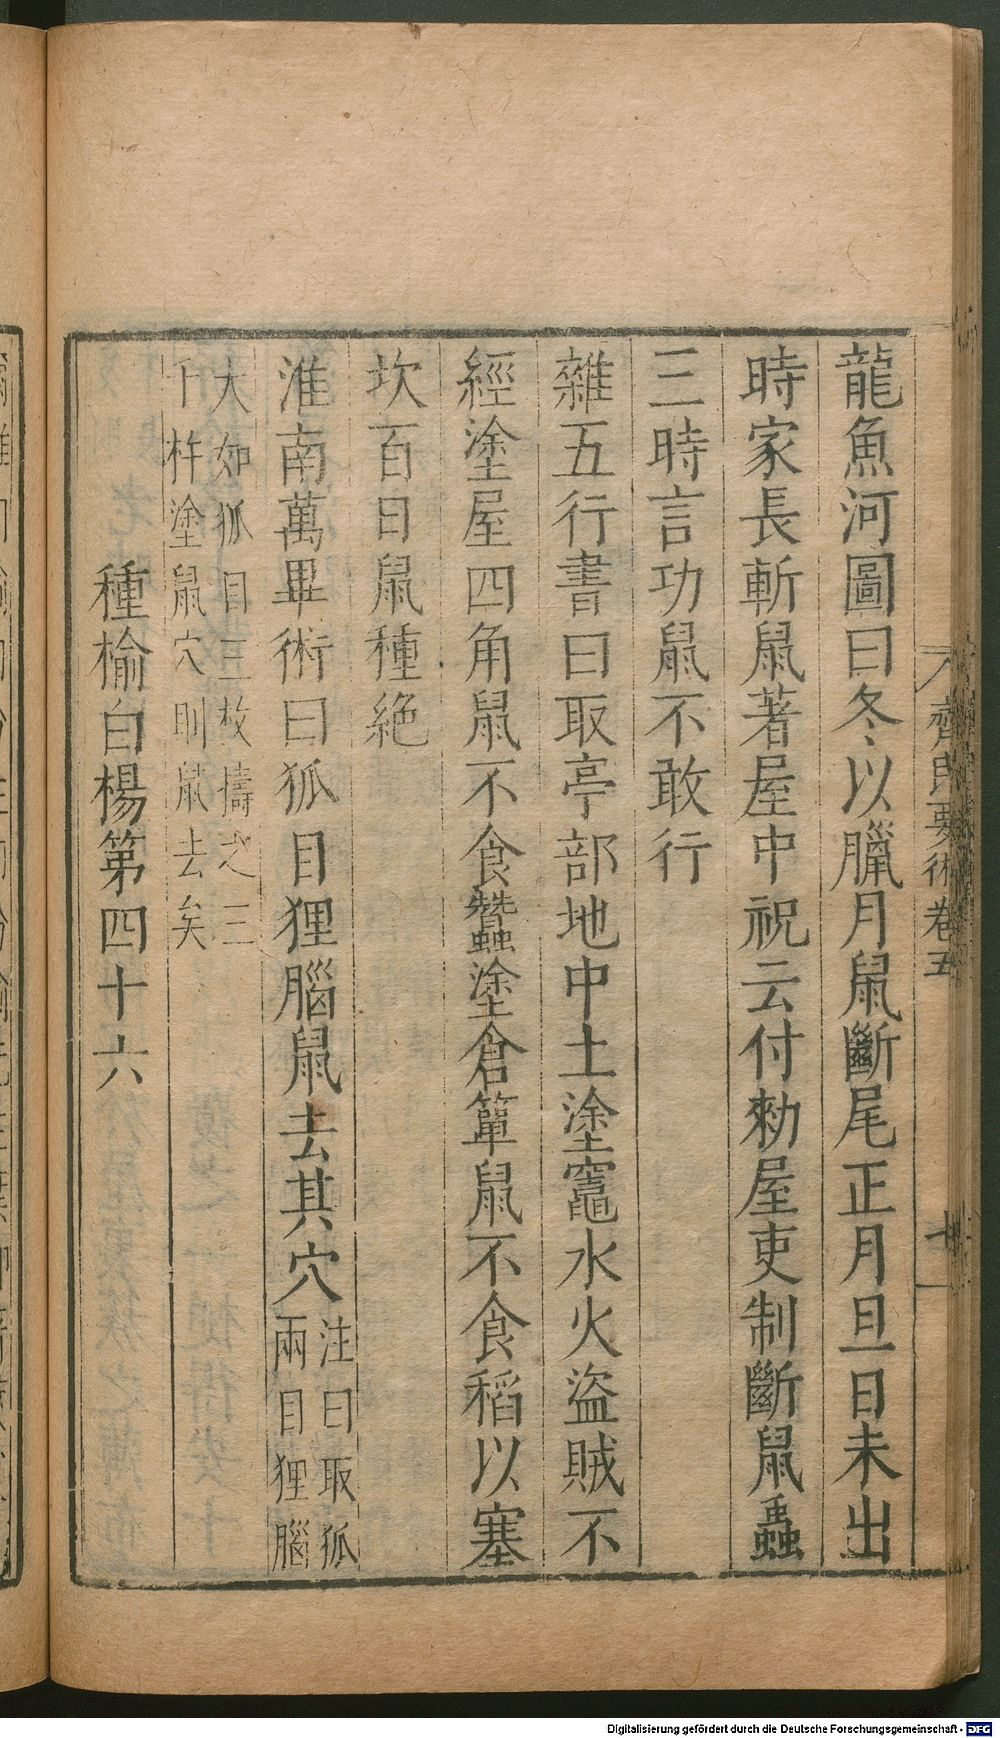 龍魚河圖曰冬以臘月鼠斷尾正月旦日未出
時家長斬鼠著屋中祝云付勑屋吏制斷鼠蟲
三時言功鼠不敢行
雜五行書曰取亭部地中土塗竈水火盜賊不
經塗屋四角鼠不食蠶塗倉簞鼠不食稻以塞
坎百日鼠種絶
淮南萬畢術曰狐目狸腦鼠去其穴
注曰取狐
兩目狸腦
大如狐目三枚擣之三
千杵塗鼠穴則鼠去矣
種榆白楊第四十六
齊民要術卷五
Digitalisierung gefördert durch die Deutsche Forschungsgemeinschaft - DFG